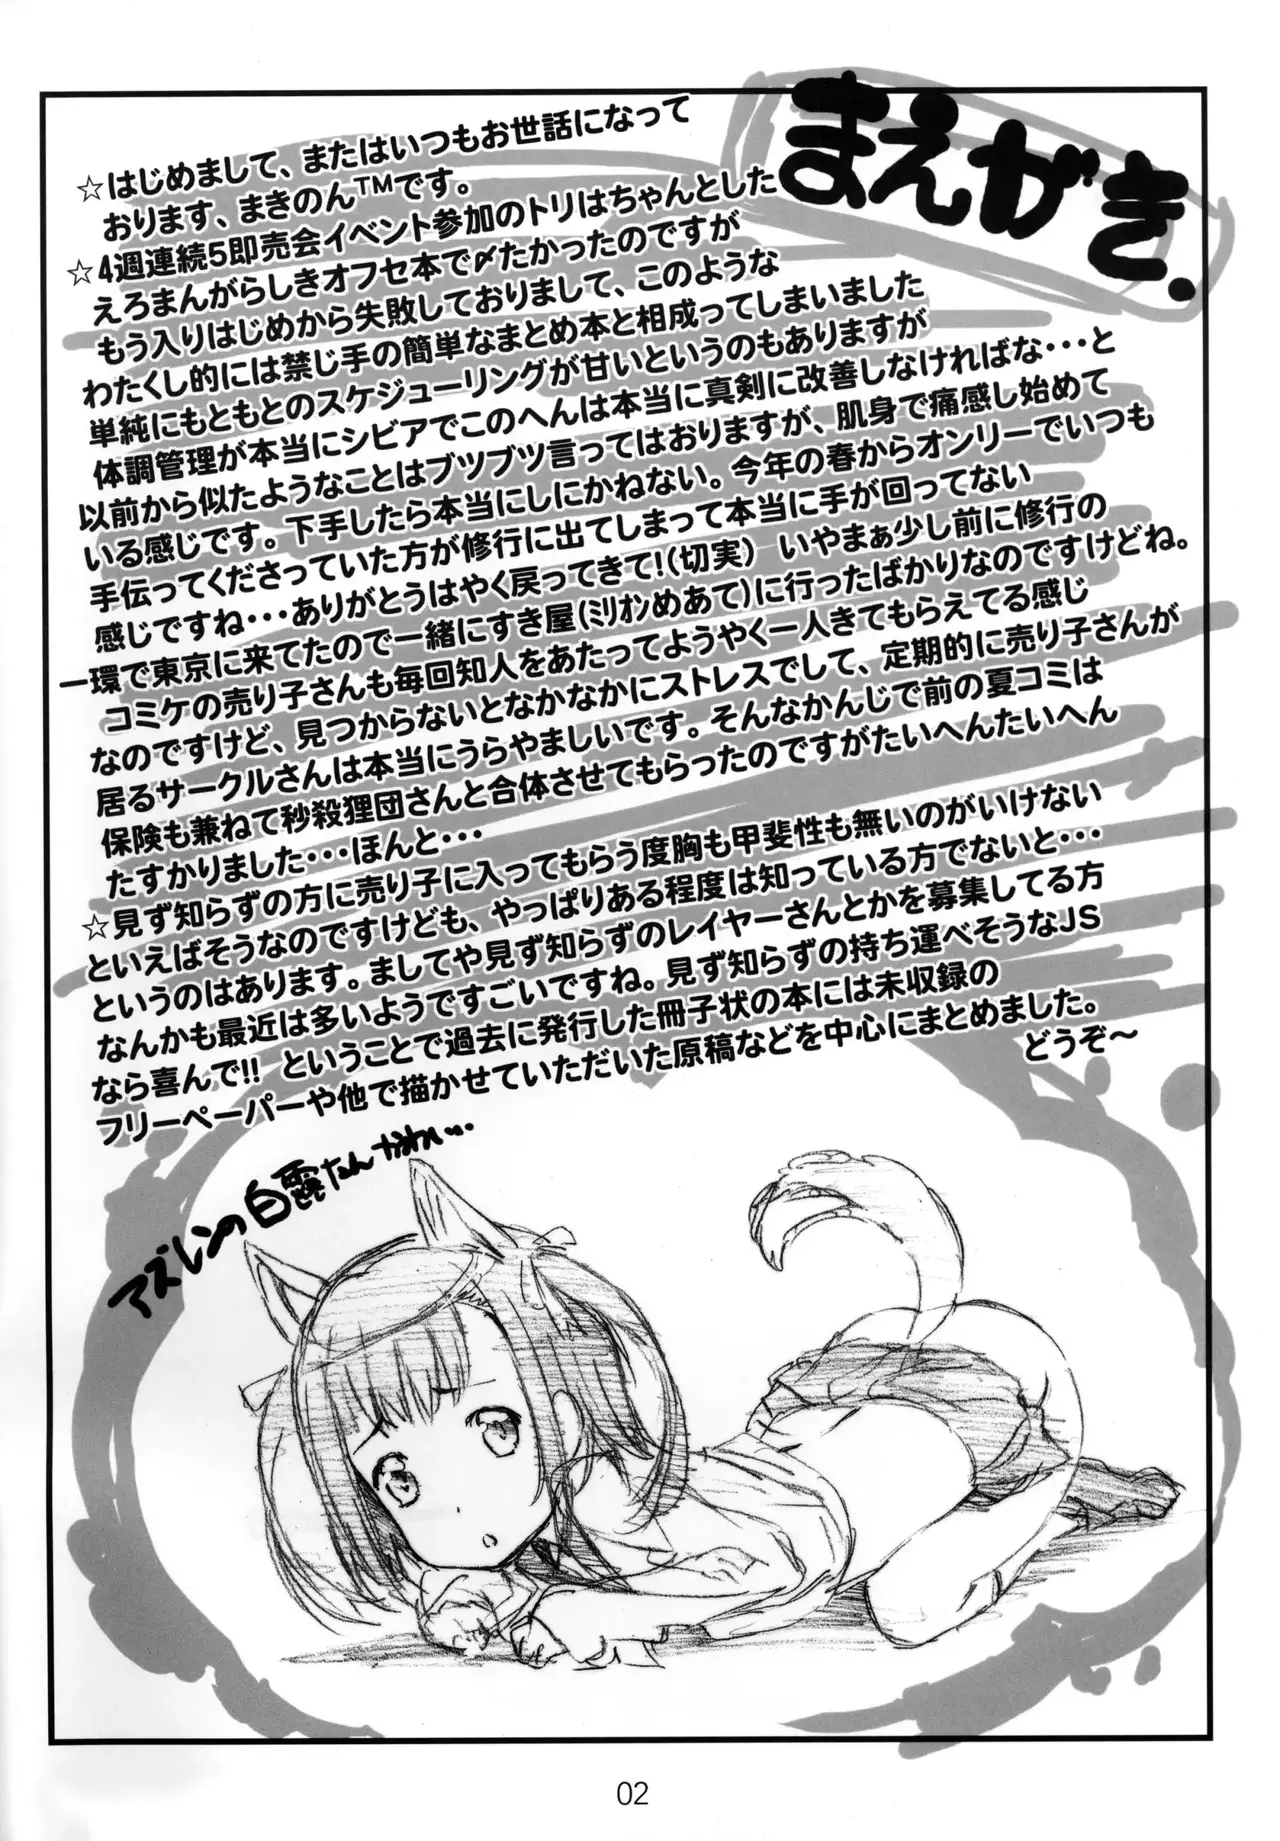 まえがき.
☆はじめまして、またはいつもお世話になって
おります、まきのん™です。
☆4週連続5即売会イベント参加のトリはちゃんとした
えろまんがらしきオフセ本で〆たかったのですが
もう入りはじめから失敗しておりまして、このような
わたくし的には禁じ手の簡単なまとめ本と相成ってしまいました
単純にもともとのスケジューリングが甘いというのもありますが
体調管理が本当にシビアでこのへんは本当に真剣に改善しなければな・・・と
以前から似たようなことはブツブツ言ってはおりますが、肌身で痛感し始めて
いる感じです。下手したら本当にしにかねない。今年の春からオンリーでいつも
手伝ってくださっていた方が修行に出てしまって本当に手が回ってない
感じですね・・・ありがとうはやく戻ってきて!(切実) いやまぁ少し前に修行の
一環で東京に来てたので一緒にすき屋(ﾐﾘｵﾝめあて)に行ったばかりなのですけどね。
コミケの売り子さんも毎回知人をあたってようやく一人きてもらえてる感じ
なのですけど、見つからないとなかなかにストレスでして、定期的に売り子さんが
居るサークルさんは本当にうらやましいです。そんなかんじで前の夏コミは
保険も兼ねて秒殺狸団さんと合体させてもらったのですがたいへんたいへん
たすかりました・・・ほんと・・・
☆見ず知らずの方に売り子に入ってもらう度胸も甲斐性も無いのがいけない
といえばそうなのですけども、やっぱりある程度は知っている方でないと・・・
というのはあります。ましてや見ず知らずのレイヤーさんとかを募集してる方
なんかも最近は多いようですごいですね。見ず知らずの持ち運べそうなJS
なら喜んで!! ということで過去に発行した冊子状の本には未収録の
フリーペーパーや他で描かせていただいた原稿などを中心にまとめました。
どうぞ～
アズレンの白露たんかわい...
02